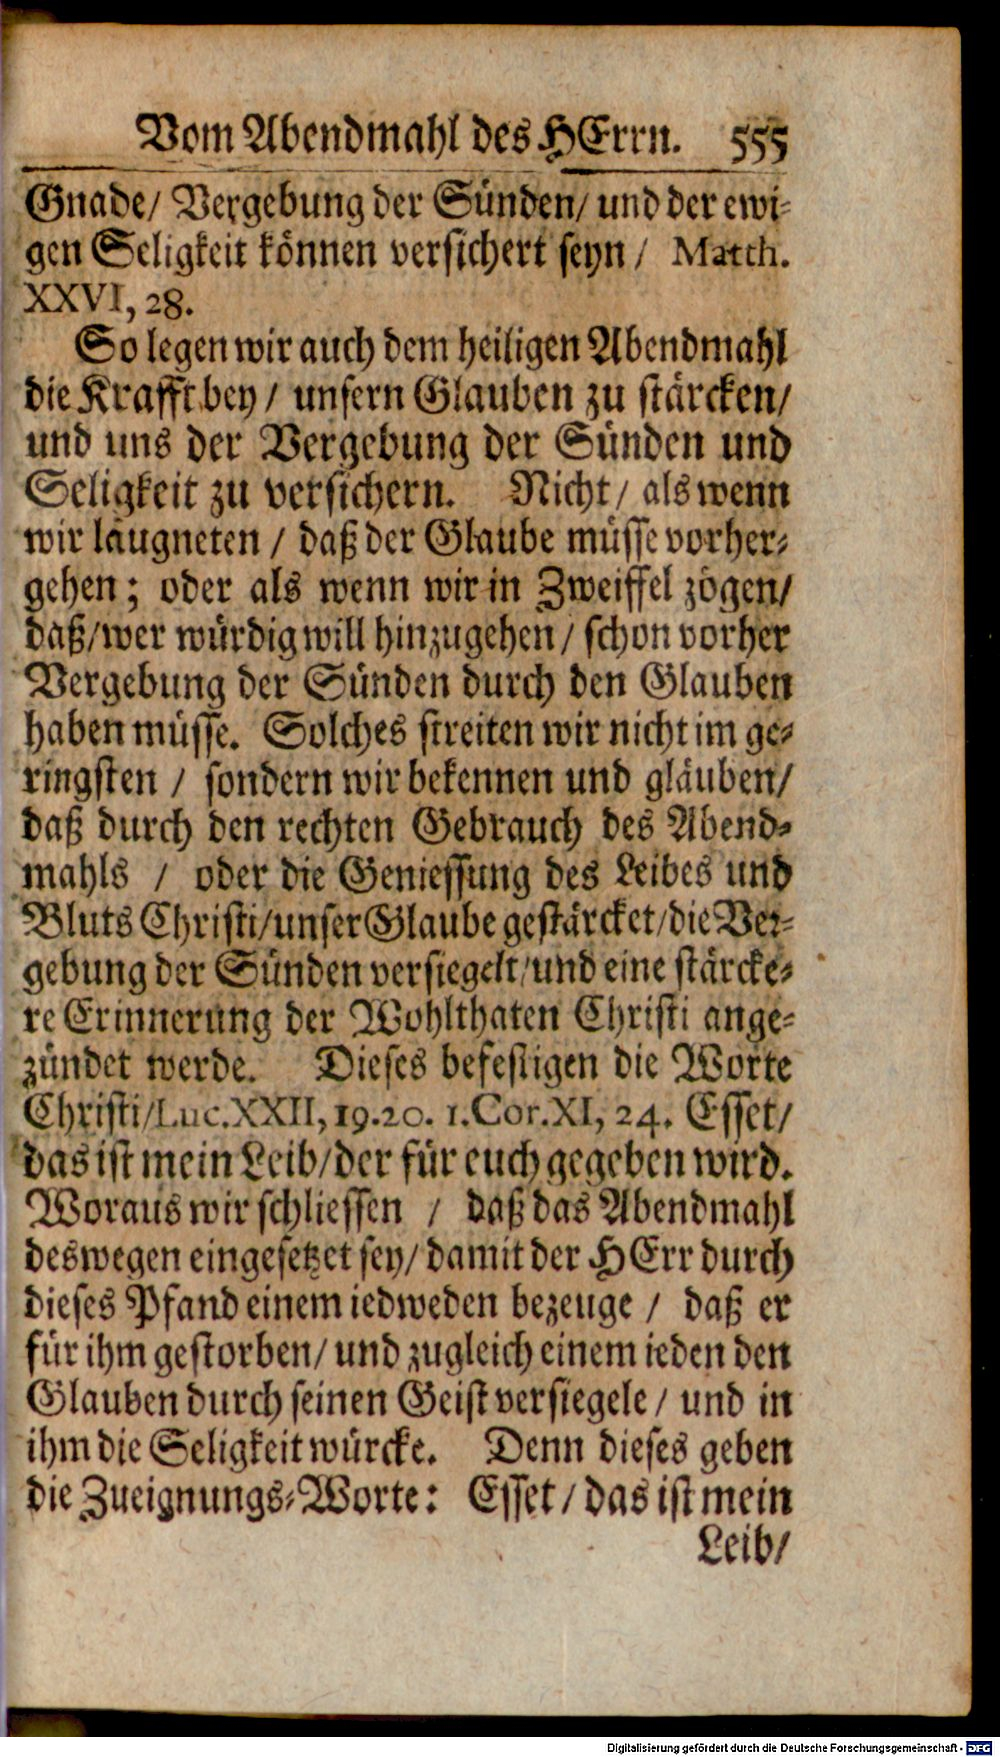 Vom Abendmahl des HErrn. 555
Gnade/ Vergebung der Sünden/ und der ewi-
gen Seligkeit können versichert seyn/ Matth.
XXVI, 28.
So legen wir auch dem heiligen Abendmahl
die Krafft bey/ unsern Glauben zu stärcken/
und uns der Vergebung der Sünden und
Seligkeit zu versichern. Nicht/ als wenn
wir läugneten/ daß der Glaube müsse vorher-
gehen; oder als wenn wir in Zweiffel zögen/
daß/wer würdig will hinzugehen/ schon vorher
Vergebung der Sünden durch den Glauben
haben müsse. Solches streiten wir nicht im ge-
ringsten/ sondern wir bekennen und gläuben/
daß durch den rechten Gebrauch des Abend-
mahls/ oder die Geniessung des Leibes und
Bluts Christi/unser Glaube gestärcket/die Ver-
gebung der Sünden versiegelt/und eine stärcke-
re Erinnerung der Wohlthaten Christi ange-
zündet werde. Dieses befestigen die Worte
Christi/Luc.XXII, 19.20. 1.Cor.XI, 24. Esset/
das ist mein Leib/der für euch gegeben wird.
Woraus wir schliessen/ daß das Abendmahl
deswegen eingesetzet sey/ damit der HErr durch
dieses Pfand einem iedweden bezeuge/ daß er
für ihm gestorben/ und zugleich einem ieden den
Glauben durch seinen Geist versiegele/ und in
ihm die Seligkeit würcke. Denn dieses geben
die Zueignungs-Worte: Esset/ das ist mein
Leib/
Digitalisierung gefördert durch die Deutsche Forschungsgemeinschaft - DFG